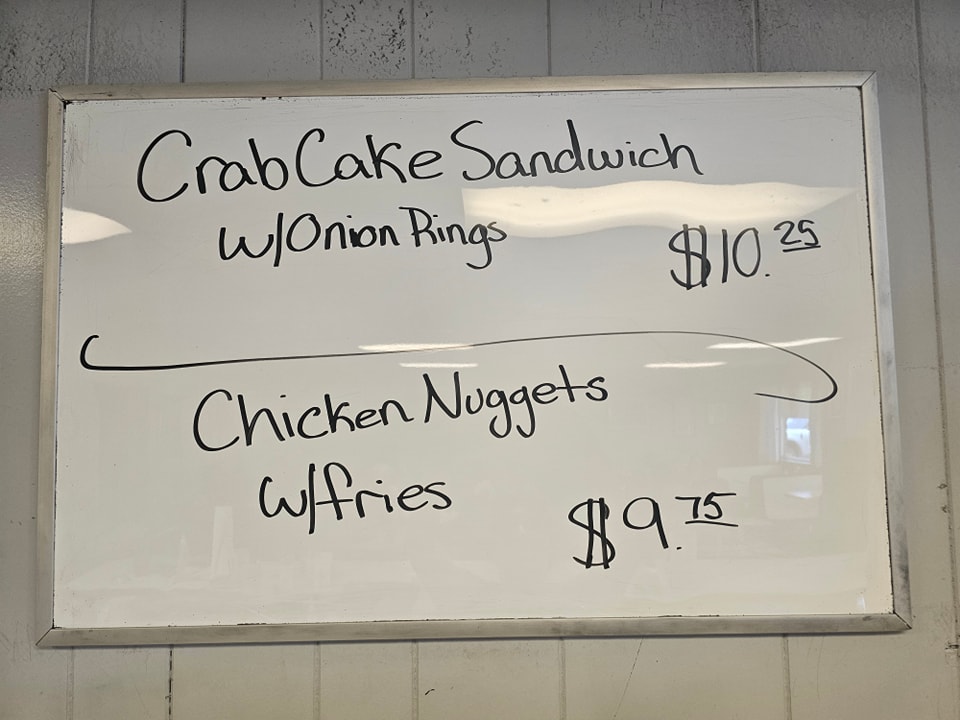 Crab Cake Sandwich
w/Onion Rings
$10.25
Chicken Nuggets
w/fries
$9.75